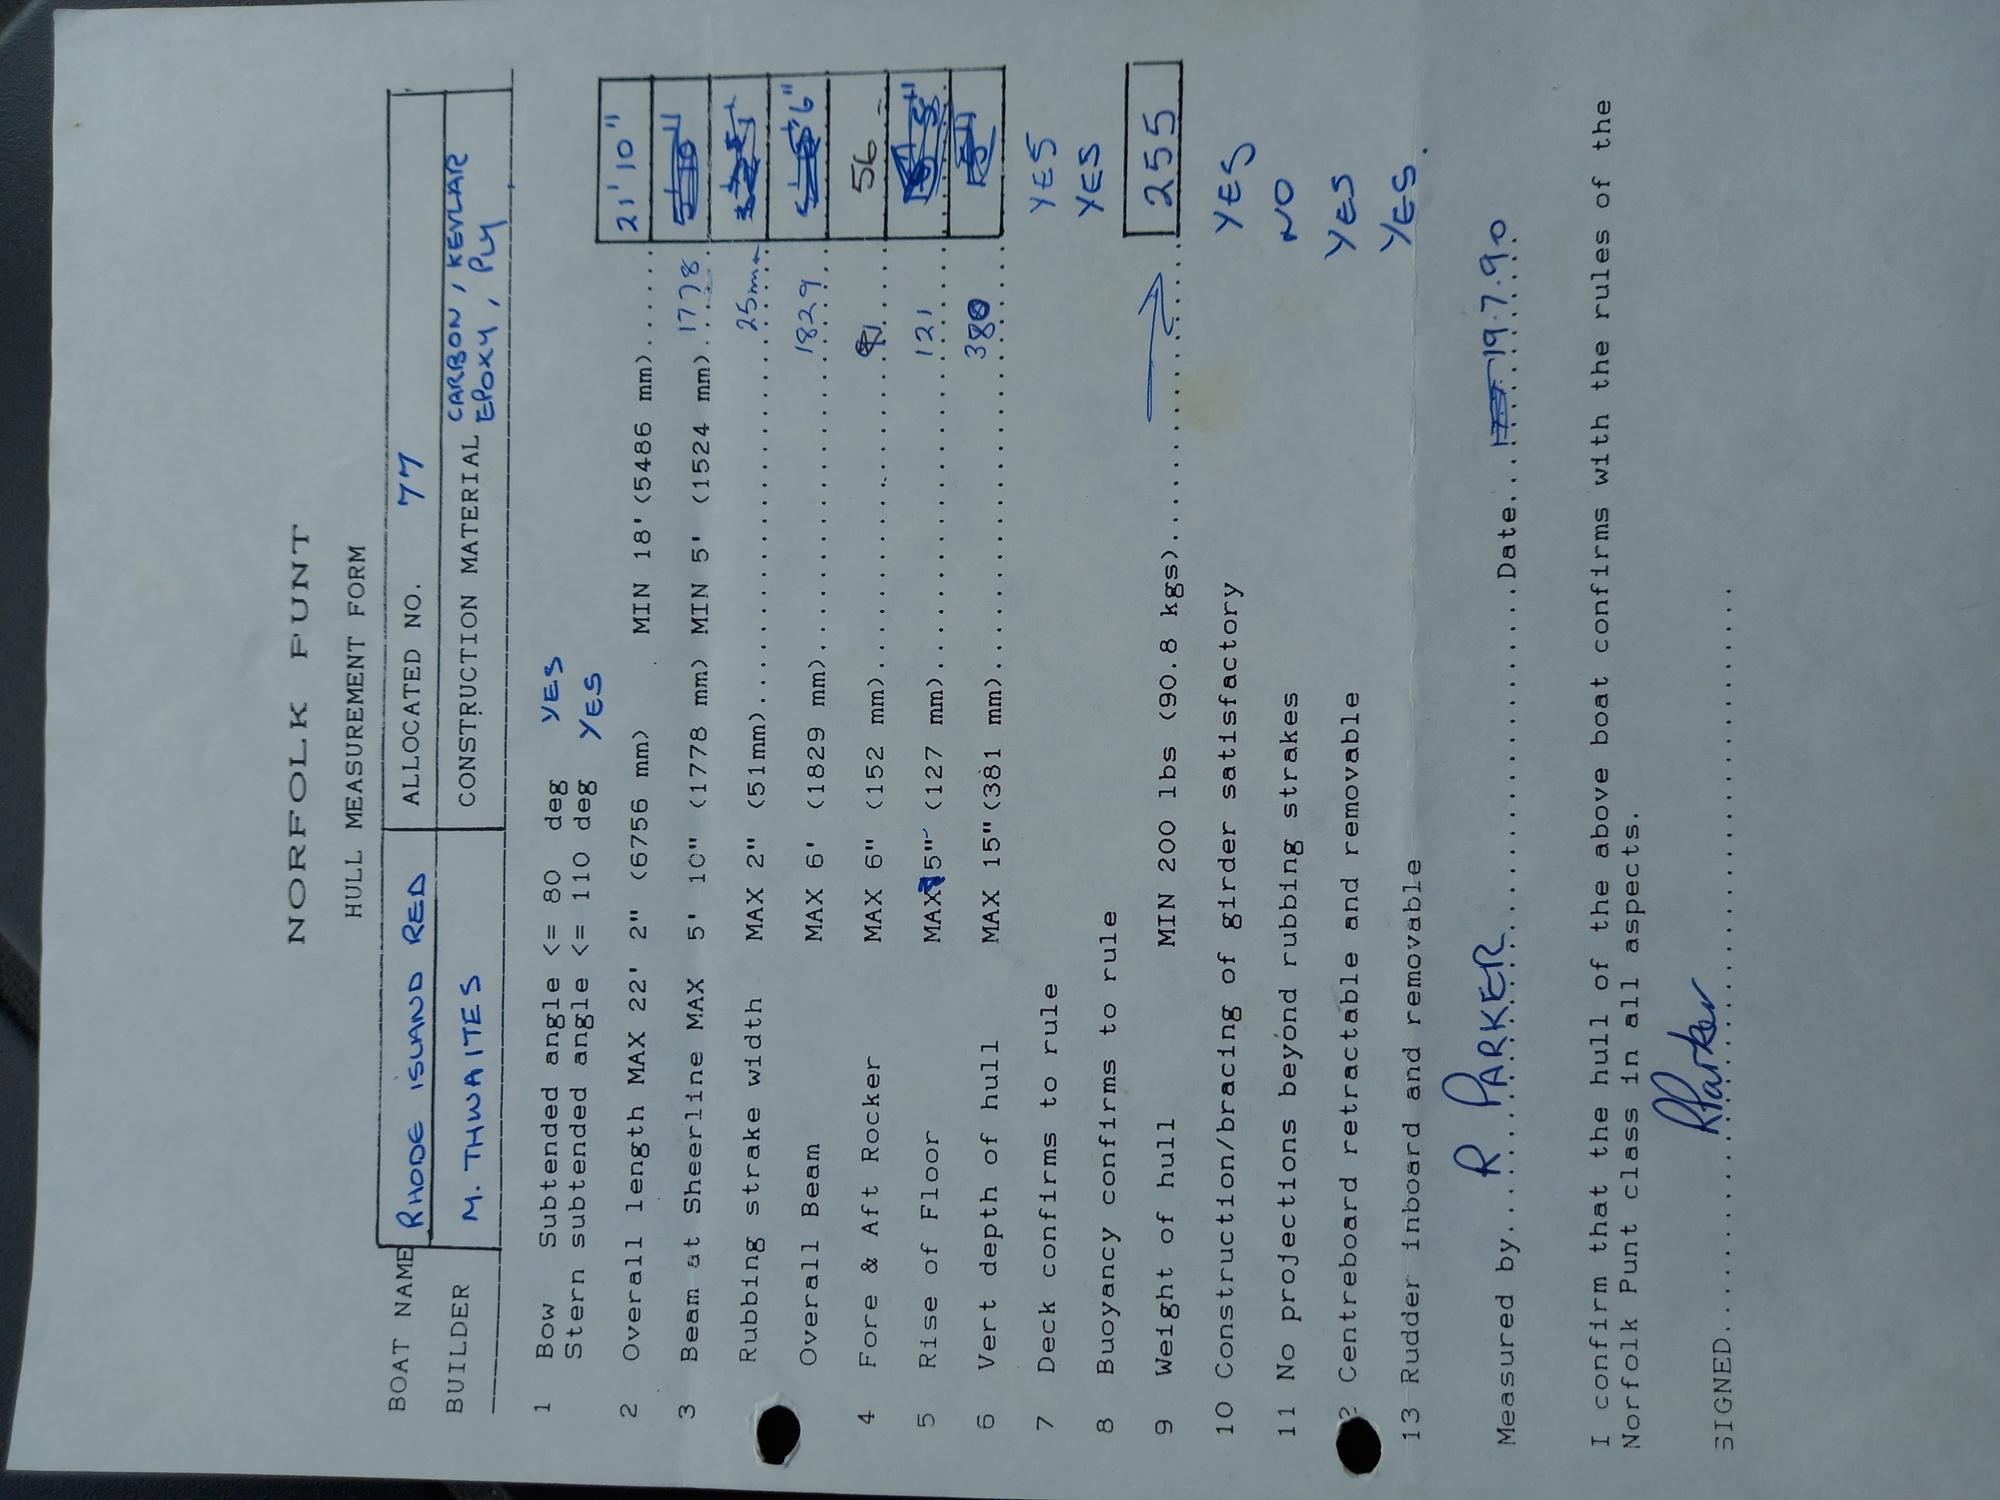 NORFOLK PUNT
HULL MEASUREMENT FORM
BOAT NAME RHODE ISLAND RED ALLOCATED NO. 77
BUILDER M. THWAITES CONSTRUCTION MATERIAL CARBON, KEVLAR
EPOXY, PLY
1 Bow Subtended angle <= 80 deg YES
Stern subtended angle <= 110 deg YES
2 Overall length MAX 22' 2" (6756 mm) MIN 18' (5486 mm)...... 21' 10"
3 Beam at Sheerline MAX 5' 10" (1778 mm) MIN 5' (1524 mm)..... 1778
Rubbing strake width MAX 2" (51mm)......................... 25mm
Overall Beam MAX 6' (1829 mm)...................... 1829 6"
4 Fore & Aft Rocker MAX 6" (152 mm)....................... 56
5 Rise of Floor MAX 5" (127 mm)....................... 121
6 Vert depth of hull MAX 15" (381 mm)....................... 380
7 Deck confirms to rule YES
8 Buoyancy confirms to rule YES
9 Weight of hull MIN 200 lbs (90.8 kgs)................ 255
10 Construction/bracing of girder satisfactory YES
11 No projections beyond rubbing strakes NO
2 Centreboard retractable and removable YES
13 Rudder inboard and removable YES.
Measured by... R PARKER ...................Date... 19.7.90
I confirm that the hull of the above boat confirms with the rules of the
Norfolk Punt class in all aspects.
SIGNED........... RParker .....................